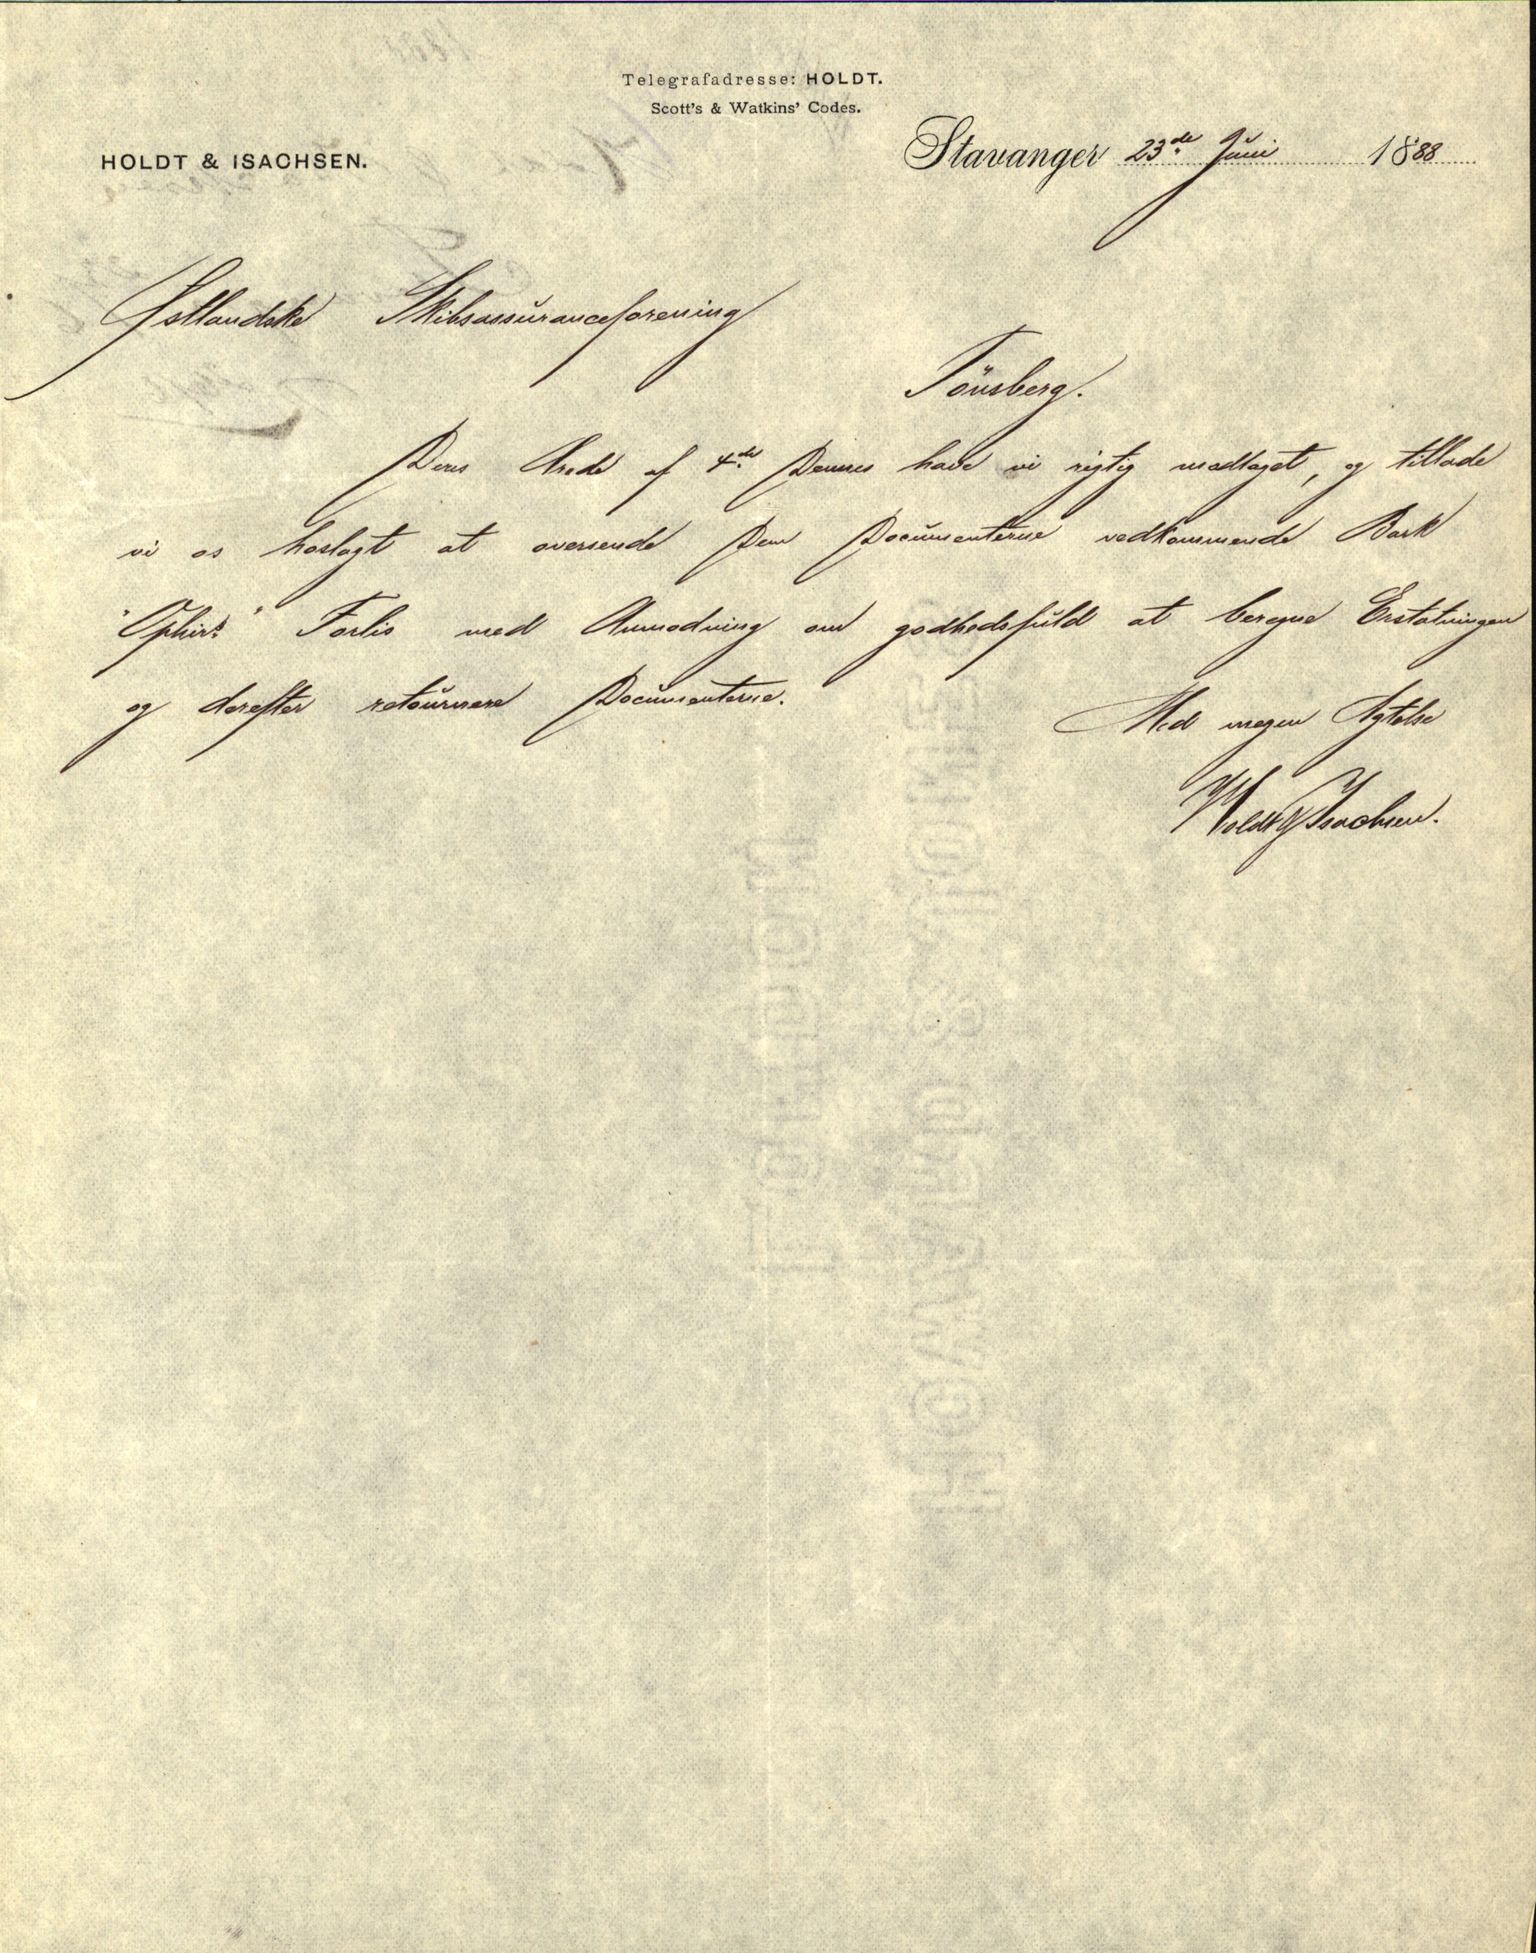 Telegrafadresse: HOLDT.
Scott's & Watkins' Codes.
HOLDT & ISACHSEN.
Stavanger 23de Juni 1888
Østlandske Skibsassuranceforening
Tönsberg.
Deres Ærede af 4de Dennes have vi rigtig modtaget, og tillade
vi os hoslagt at oversende Dem Documenterne vedkommende Bark
"Ophirs" Forlis med Anmodning om godhedsfuld at beregne Erstatningen
og derefter retournere Documenterne.
Med megen Agtelse
Holdt & Isachsen.
HOWARD & JONES
LONDON